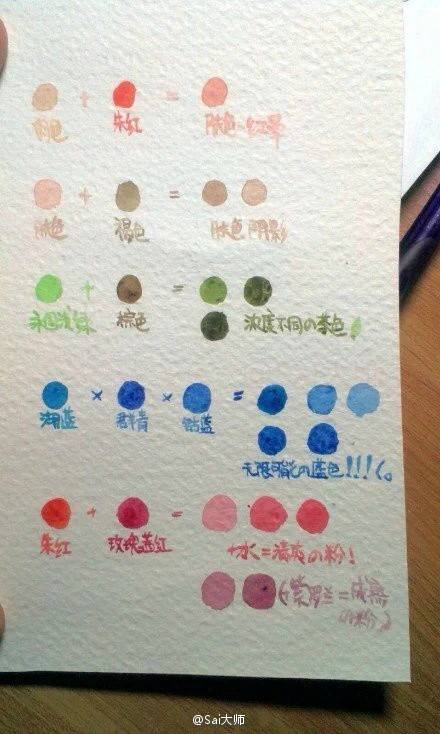 肉色 + 朱红 = 肤色·红晕
肤色 + 褐色 = 肤色 阴影
永固浅绿 + 棕色 = 浓度不同の茶色!
湖蓝 × 群青 × 钴蓝 = 无限可能の蓝色!!!
朱红 + 玫瑰茜红 = +水=清爽の粉!
(+紫罗兰=成熟の粉)
@Sai大师